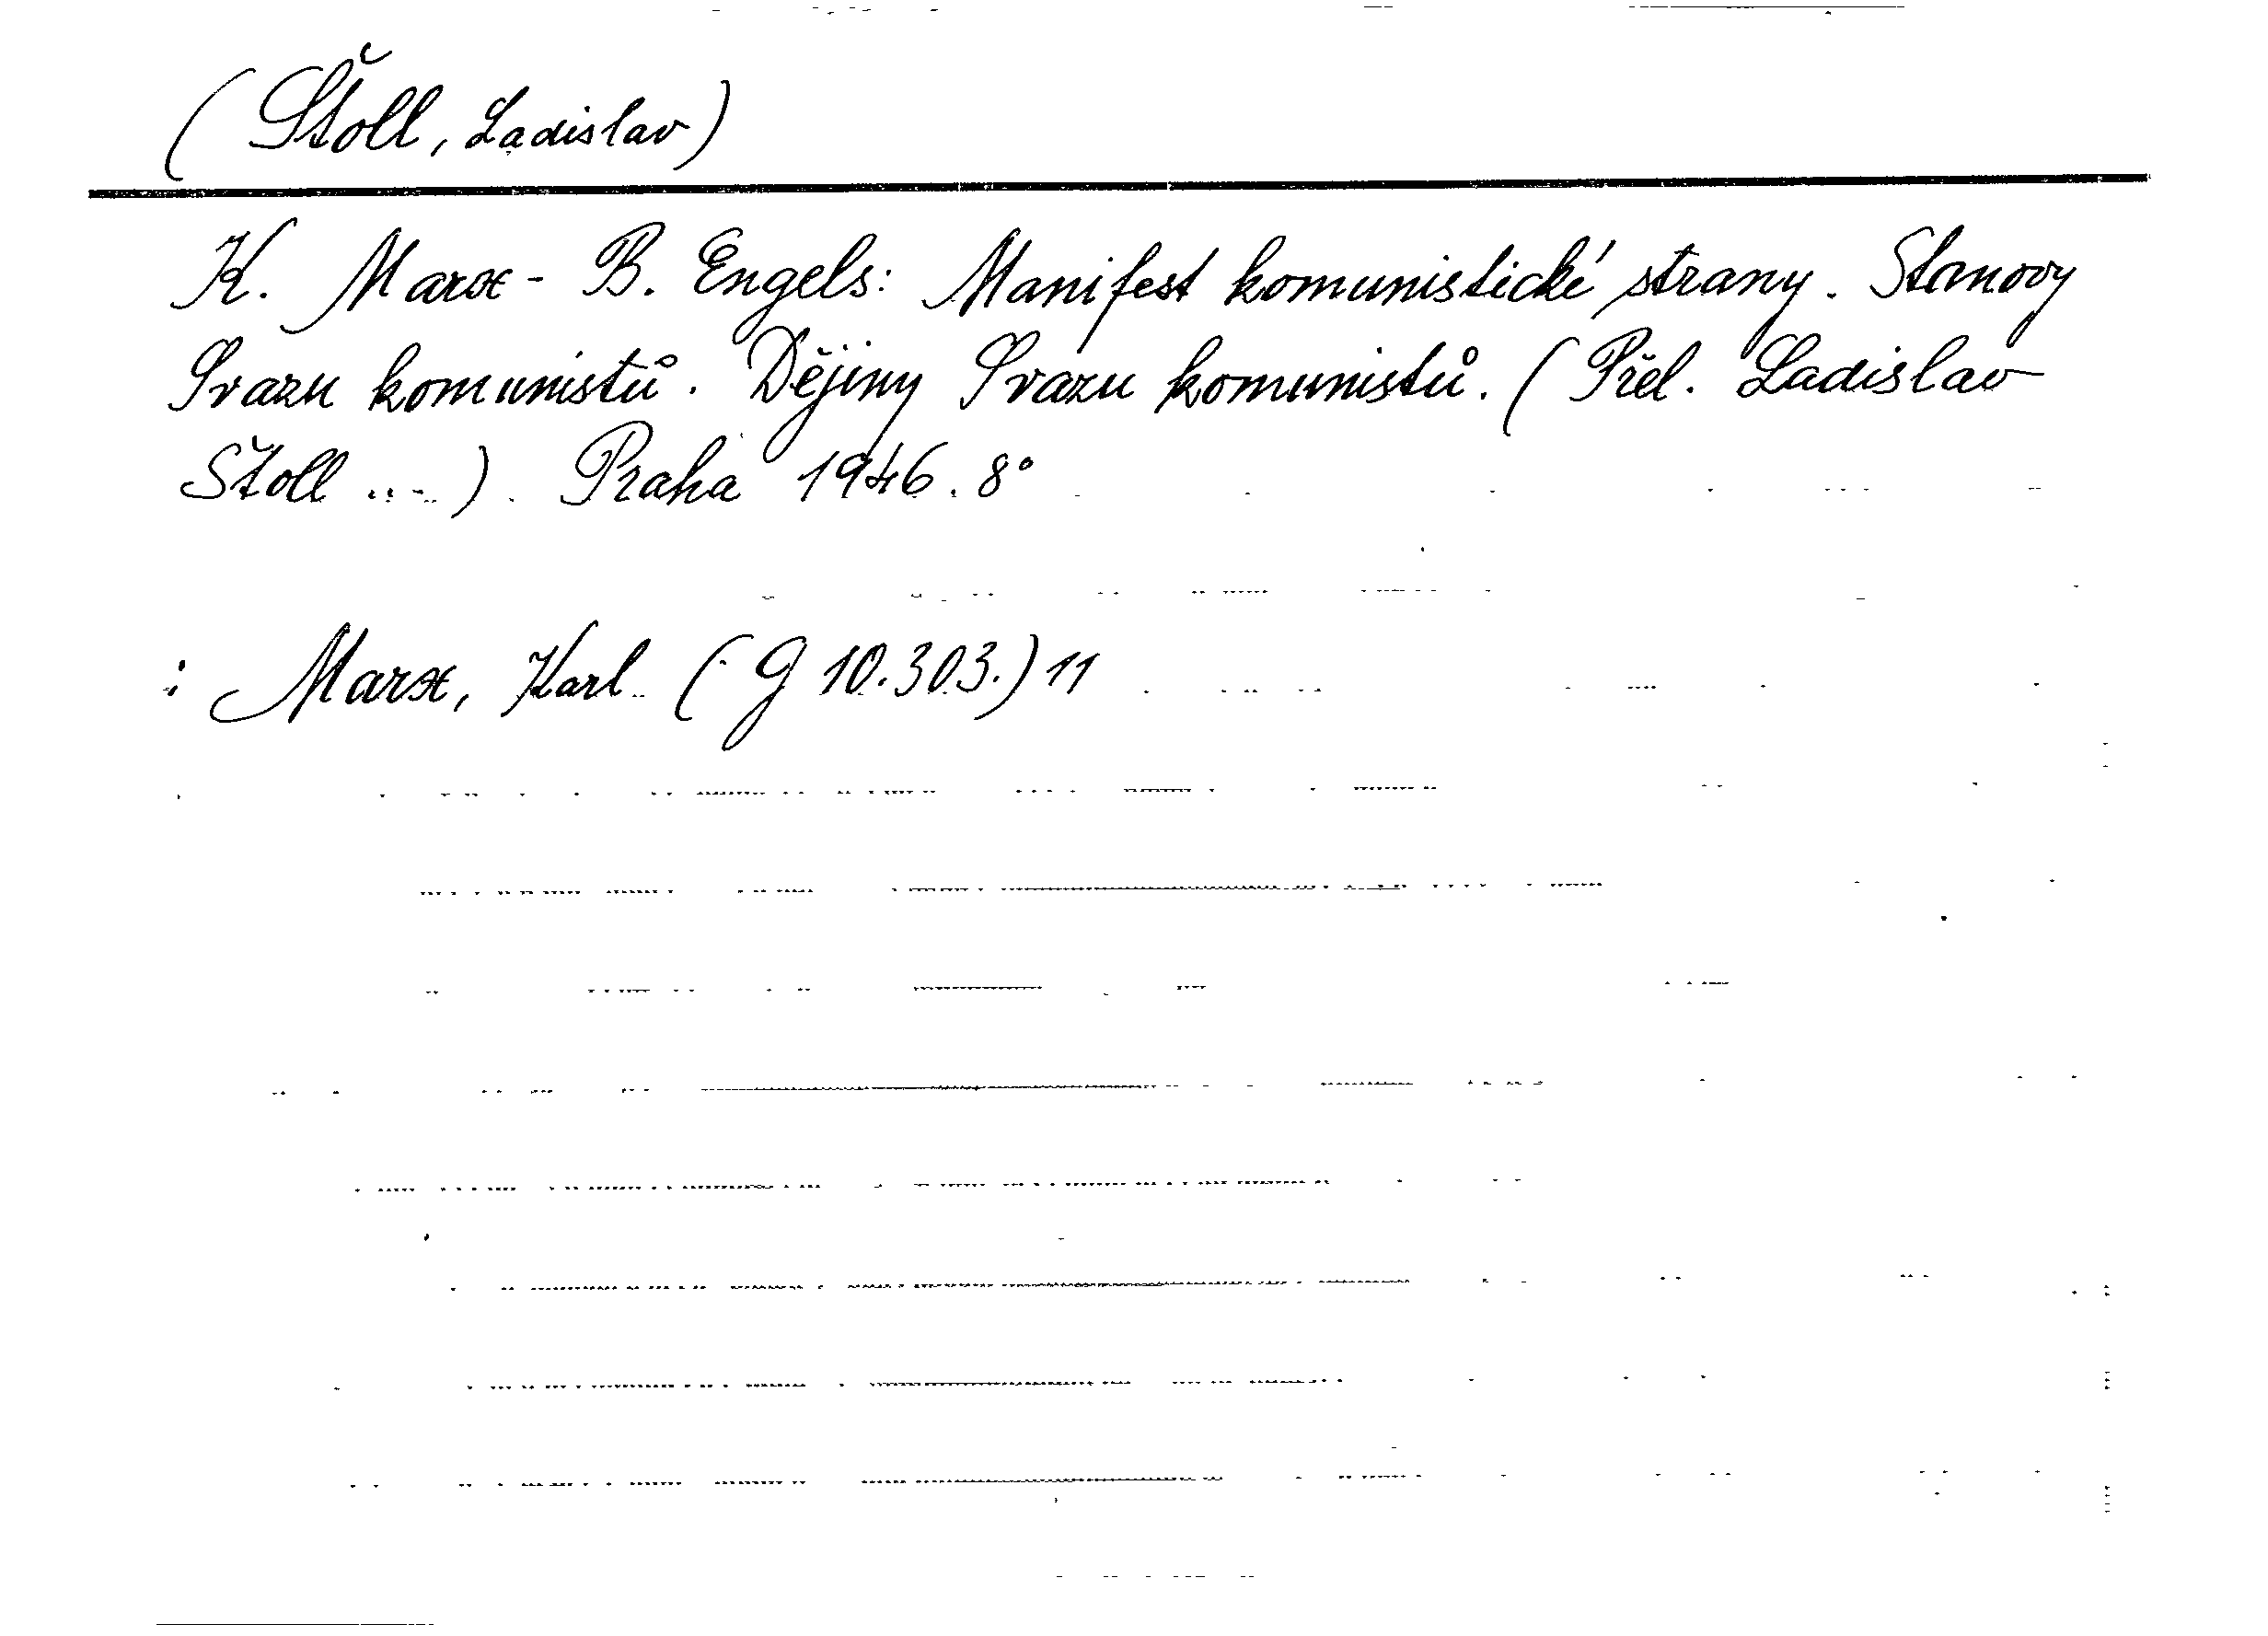 (Štoll, Ladislav)
K. Marx - B. Engels: Manifest komunistické strany. Stanovy
Svazu komunistů. Dějiny Svazu komunistů. (Přel. Ladislav
Štoll ...). Praha 1946. 8°
: Marx, Karl (G 10.303.) 11